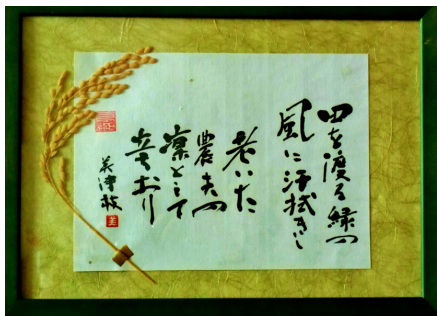 田を渡る緑の
風に汗拭きし
老いた
農夫の
凛として
立ちおり
美津枝